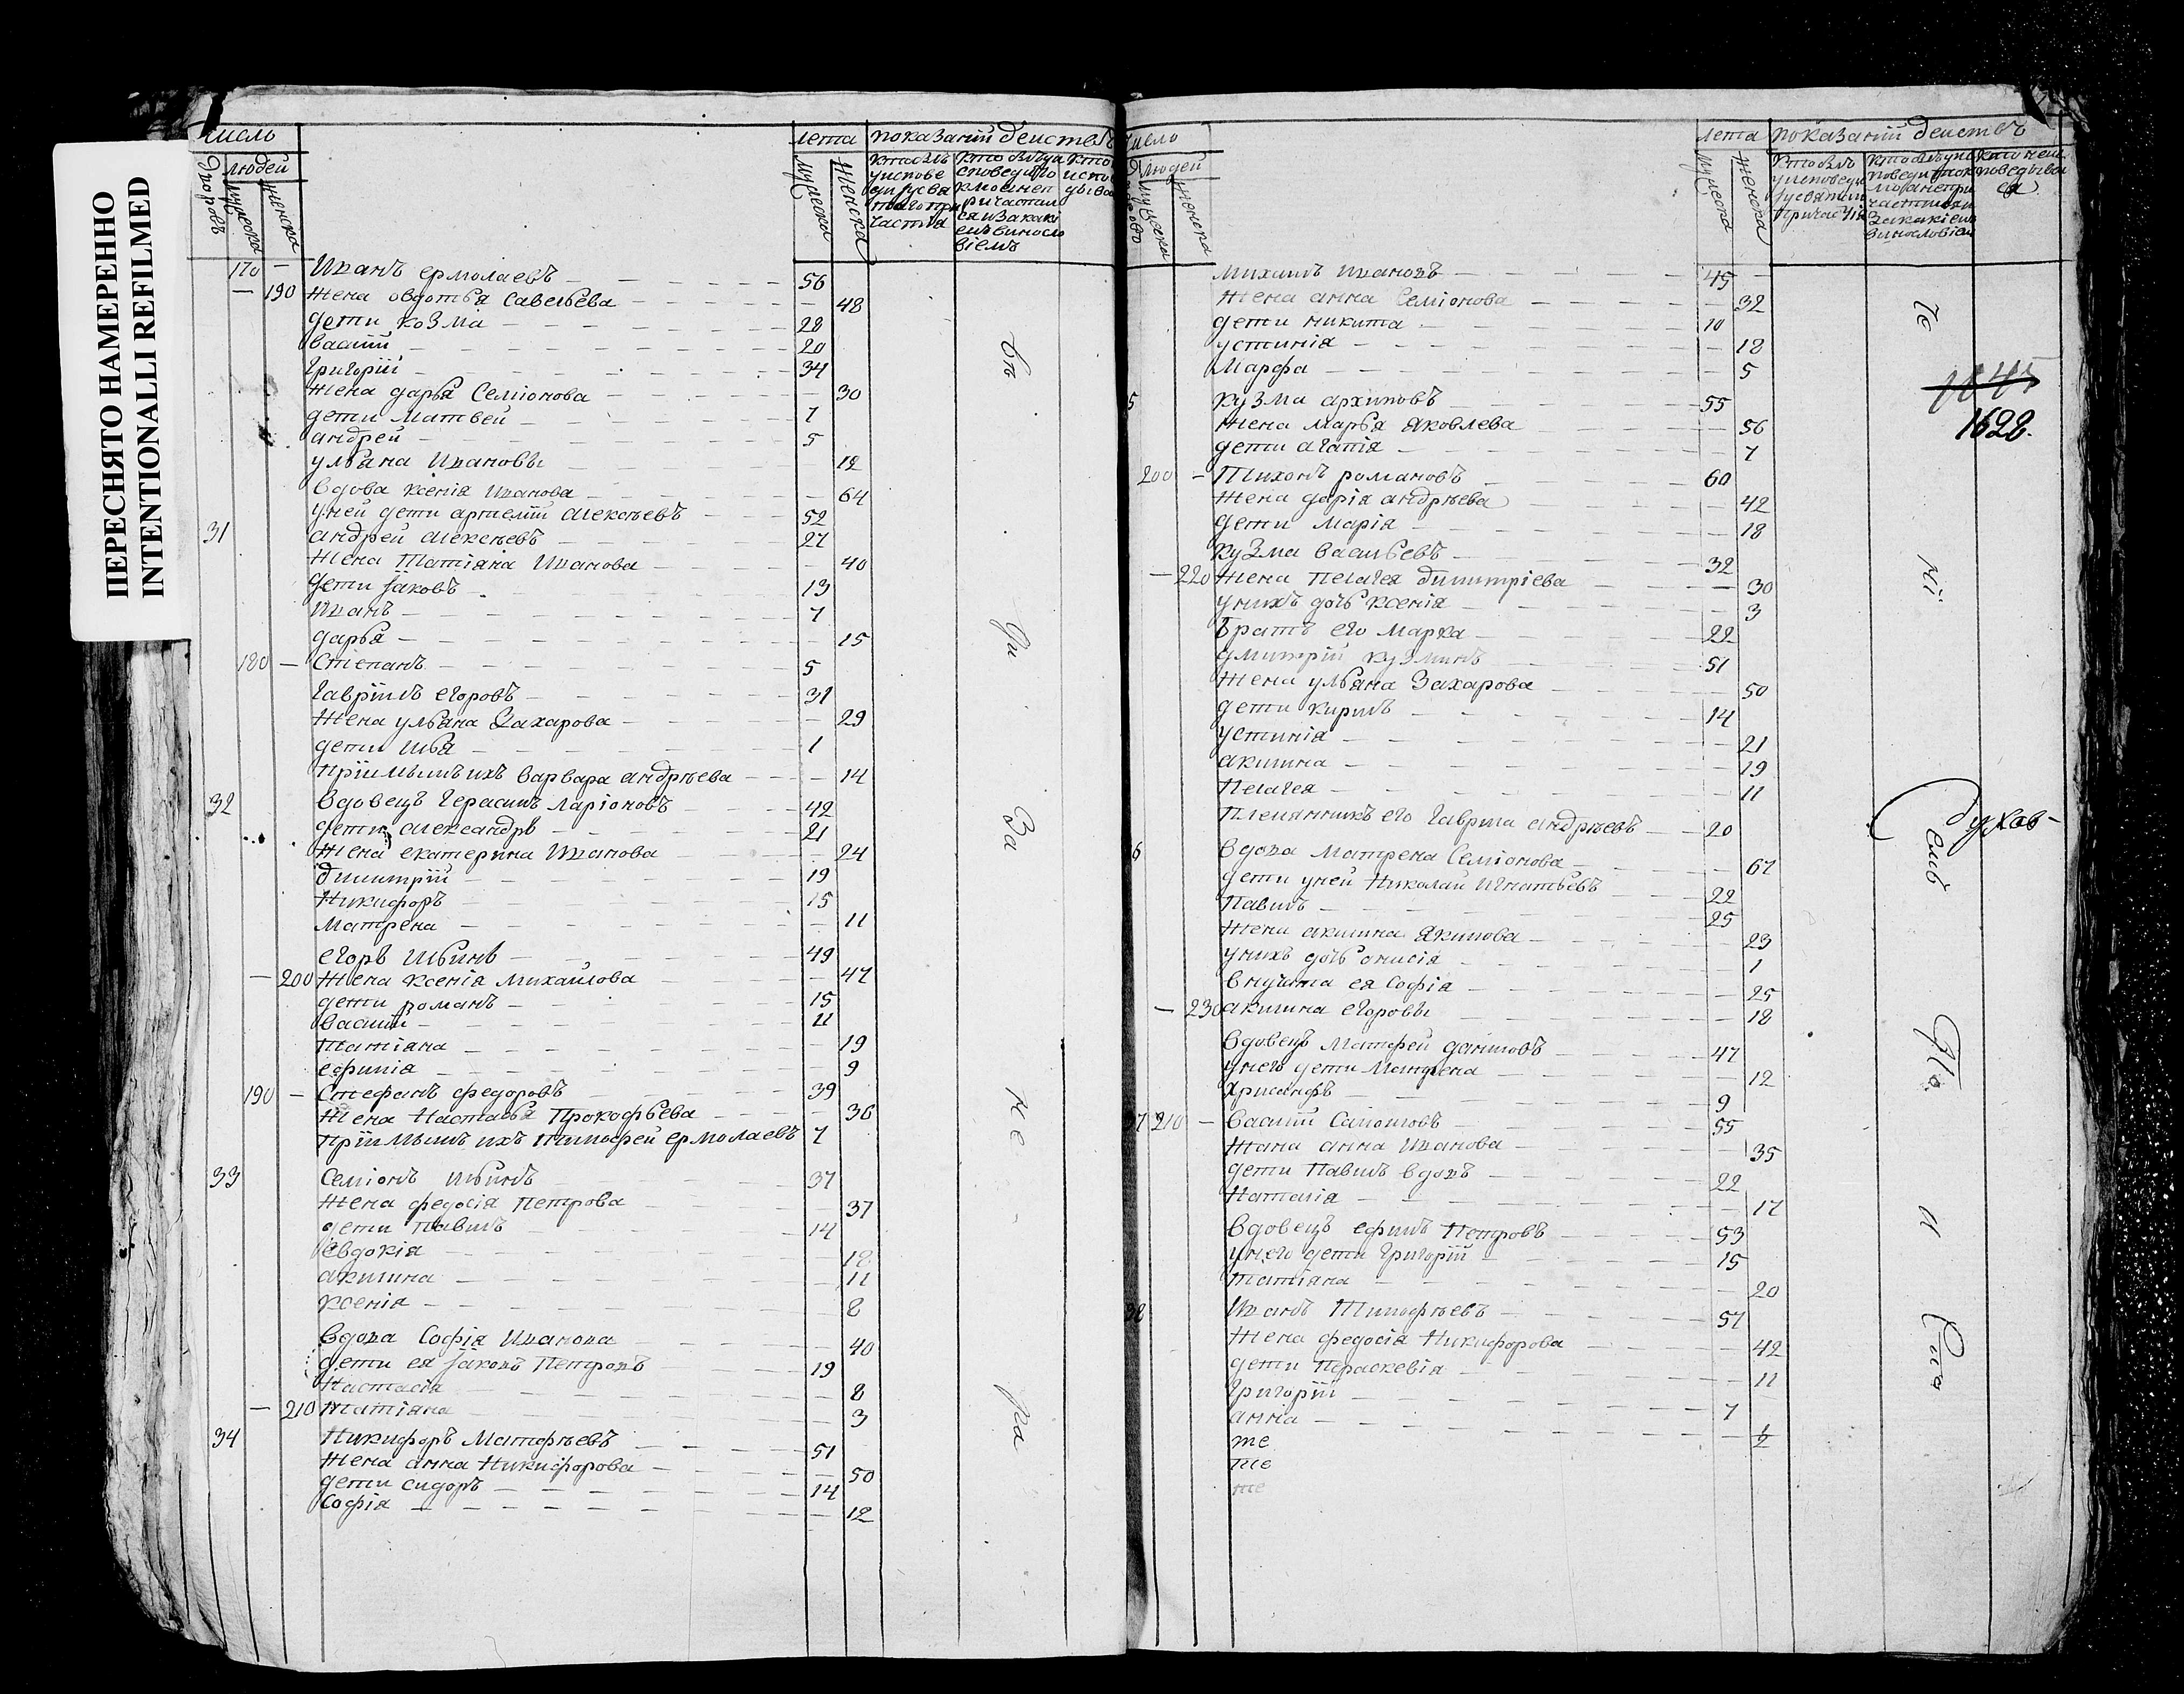 ПЕРЕСНЯТО НАМЕРЕННО
INTENTIONALLI REFILMED
число
лета показаний действъ
людей
170 — Иванъ ермолаевъ 56
— 190 жена овдотья савельева 48
дети козма 28
василий 20
григорий 34
жена дарья Семионова 30
дети Матвей 7
андрей 5
ульяна Ивановы 12
вдова ксения иванова 64
у ней дети артемий алексеевъ 52
31 андрей алексеевъ 27
жена Татияна Иванова 40
дети яковъ 13
Иванъ 7
дарья 15
180 — Стиепанъ 5
гаврийлъ егоровъ 31
жена ульяна Захарова 29
дети илья 1
приймышъ ихъ варвара андрѣева 14
32 вдовецъ герасимъ ларионовъ 42
дети александръ 21
жена екатерина Иванова 24
димитрий 19
Никифоръ 15
матрена 11
егоръ ильинъ 49
— 200 жена ксения михайлова 47
дети романъ 15
василий 11
татияна 19
ефимия 9
190 — Стефанъ федоровъ 39
жена Настасья Прокофьева 36
приймышъ ихъ тимофей ермолаевъ 7
33 Семионъ ильинъ 37
жена федосия петрова 37
дети павилъ 14
евдокия 18
акилина 11
ксения 8
вдова София Иванова 40
дети ея яковъ Петровъ 19
Настасия 8
— 210 татияна 3
34 Никифоръ Матфѣевъ 51
жена анна Никифорова 50
дети сидоръ 14
София 12
число
лета показаний действъ
людей
михаилъ ивановъ 45
жена анна Семионова 32
дети никита 10
устиния 18
Марфа 5
5 кузма архиповъ 55
жена марья яковлева 56
дети агапия 7
200 — Тихонъ романовъ 60
жена дария андрѣева 42
дети мария 18
кузма васильевъ 32
— 220 жена пелагея димитриева 30
у нихъ дочь ксения 3
братъ его марка 22
дмитрий кузминъ 51
жена ульяна Захарова 50
дети кирилъ 14
устиния 21
акилина 19
пелагея 11
племянникъ его гаврила андрѣевъ 20
6 вдова матрена Семионова 67
дети у ней Николай игнатьевъ 22
павилъ 25
жена акилина якимова 23
у нихъ дочь анисия 1
внучата ея София 25
— 230 акилина егоровы 18
вдовецъ матфей даниловъ 47
у него дети Матрена 12
хрисанфъ 9
7 210 — василий Самоиловъ 55
жана анна иванова 35
дети павилъ вдовъ 22
наталия 17
вдовецъ ефимъ петровъ 53
у него дети григорий 15
татияна 20
38 Иванъ Тимофѣевъ 57
жена федосия Никифорова 42
дети параскевия 11
григорий 7
анна
те
те
те
1645
1622.
Духов-